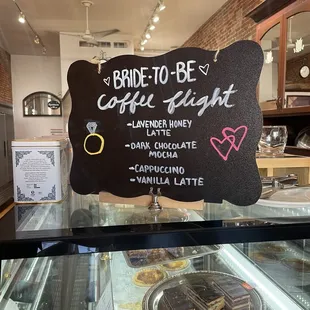 BRIDE-TO-BE
Coffee flight
-LAVENDER HONEY
LATTE
-DARK CHOCOLATE
MOCHA
-CAPPUCCINO
-VANILLA LATTE